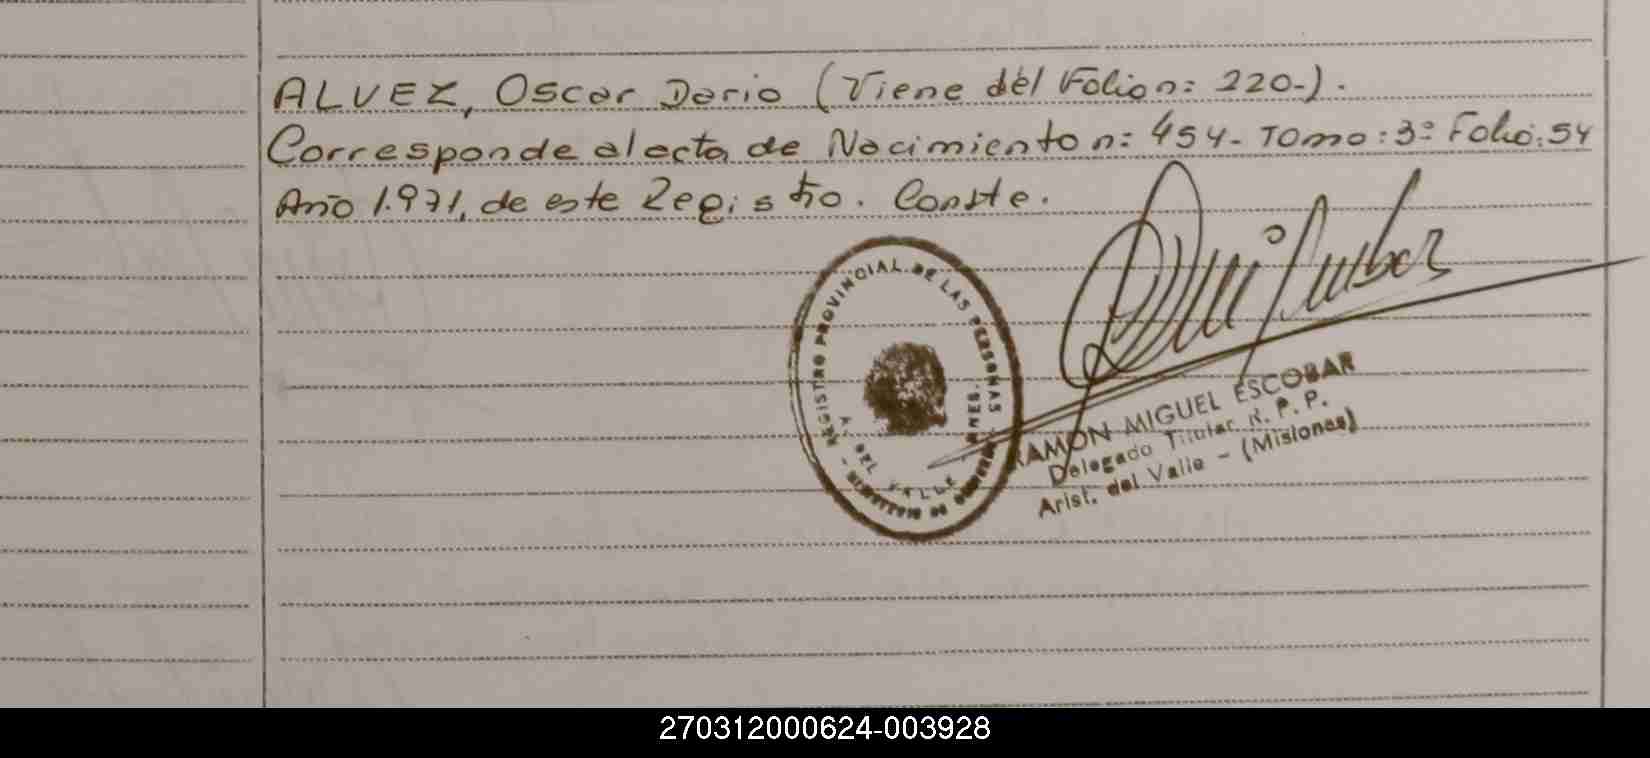 ALVEZ, Oscar Dario (Viene del Folio n: 220-).
Corresponde al acta de Nacimiento n: 454- Tomo: 3º Folio: 54
Año 1.971, de este Registro. Conste.
REGISTRO PROVINCIAL DE LAS PERSONAS
A. DEL VALLE
RAMON MIGUEL ESCOBAR
Delegado Titular R. P. P.
Arist. del Valle - (Misiones)
270312000624-003928